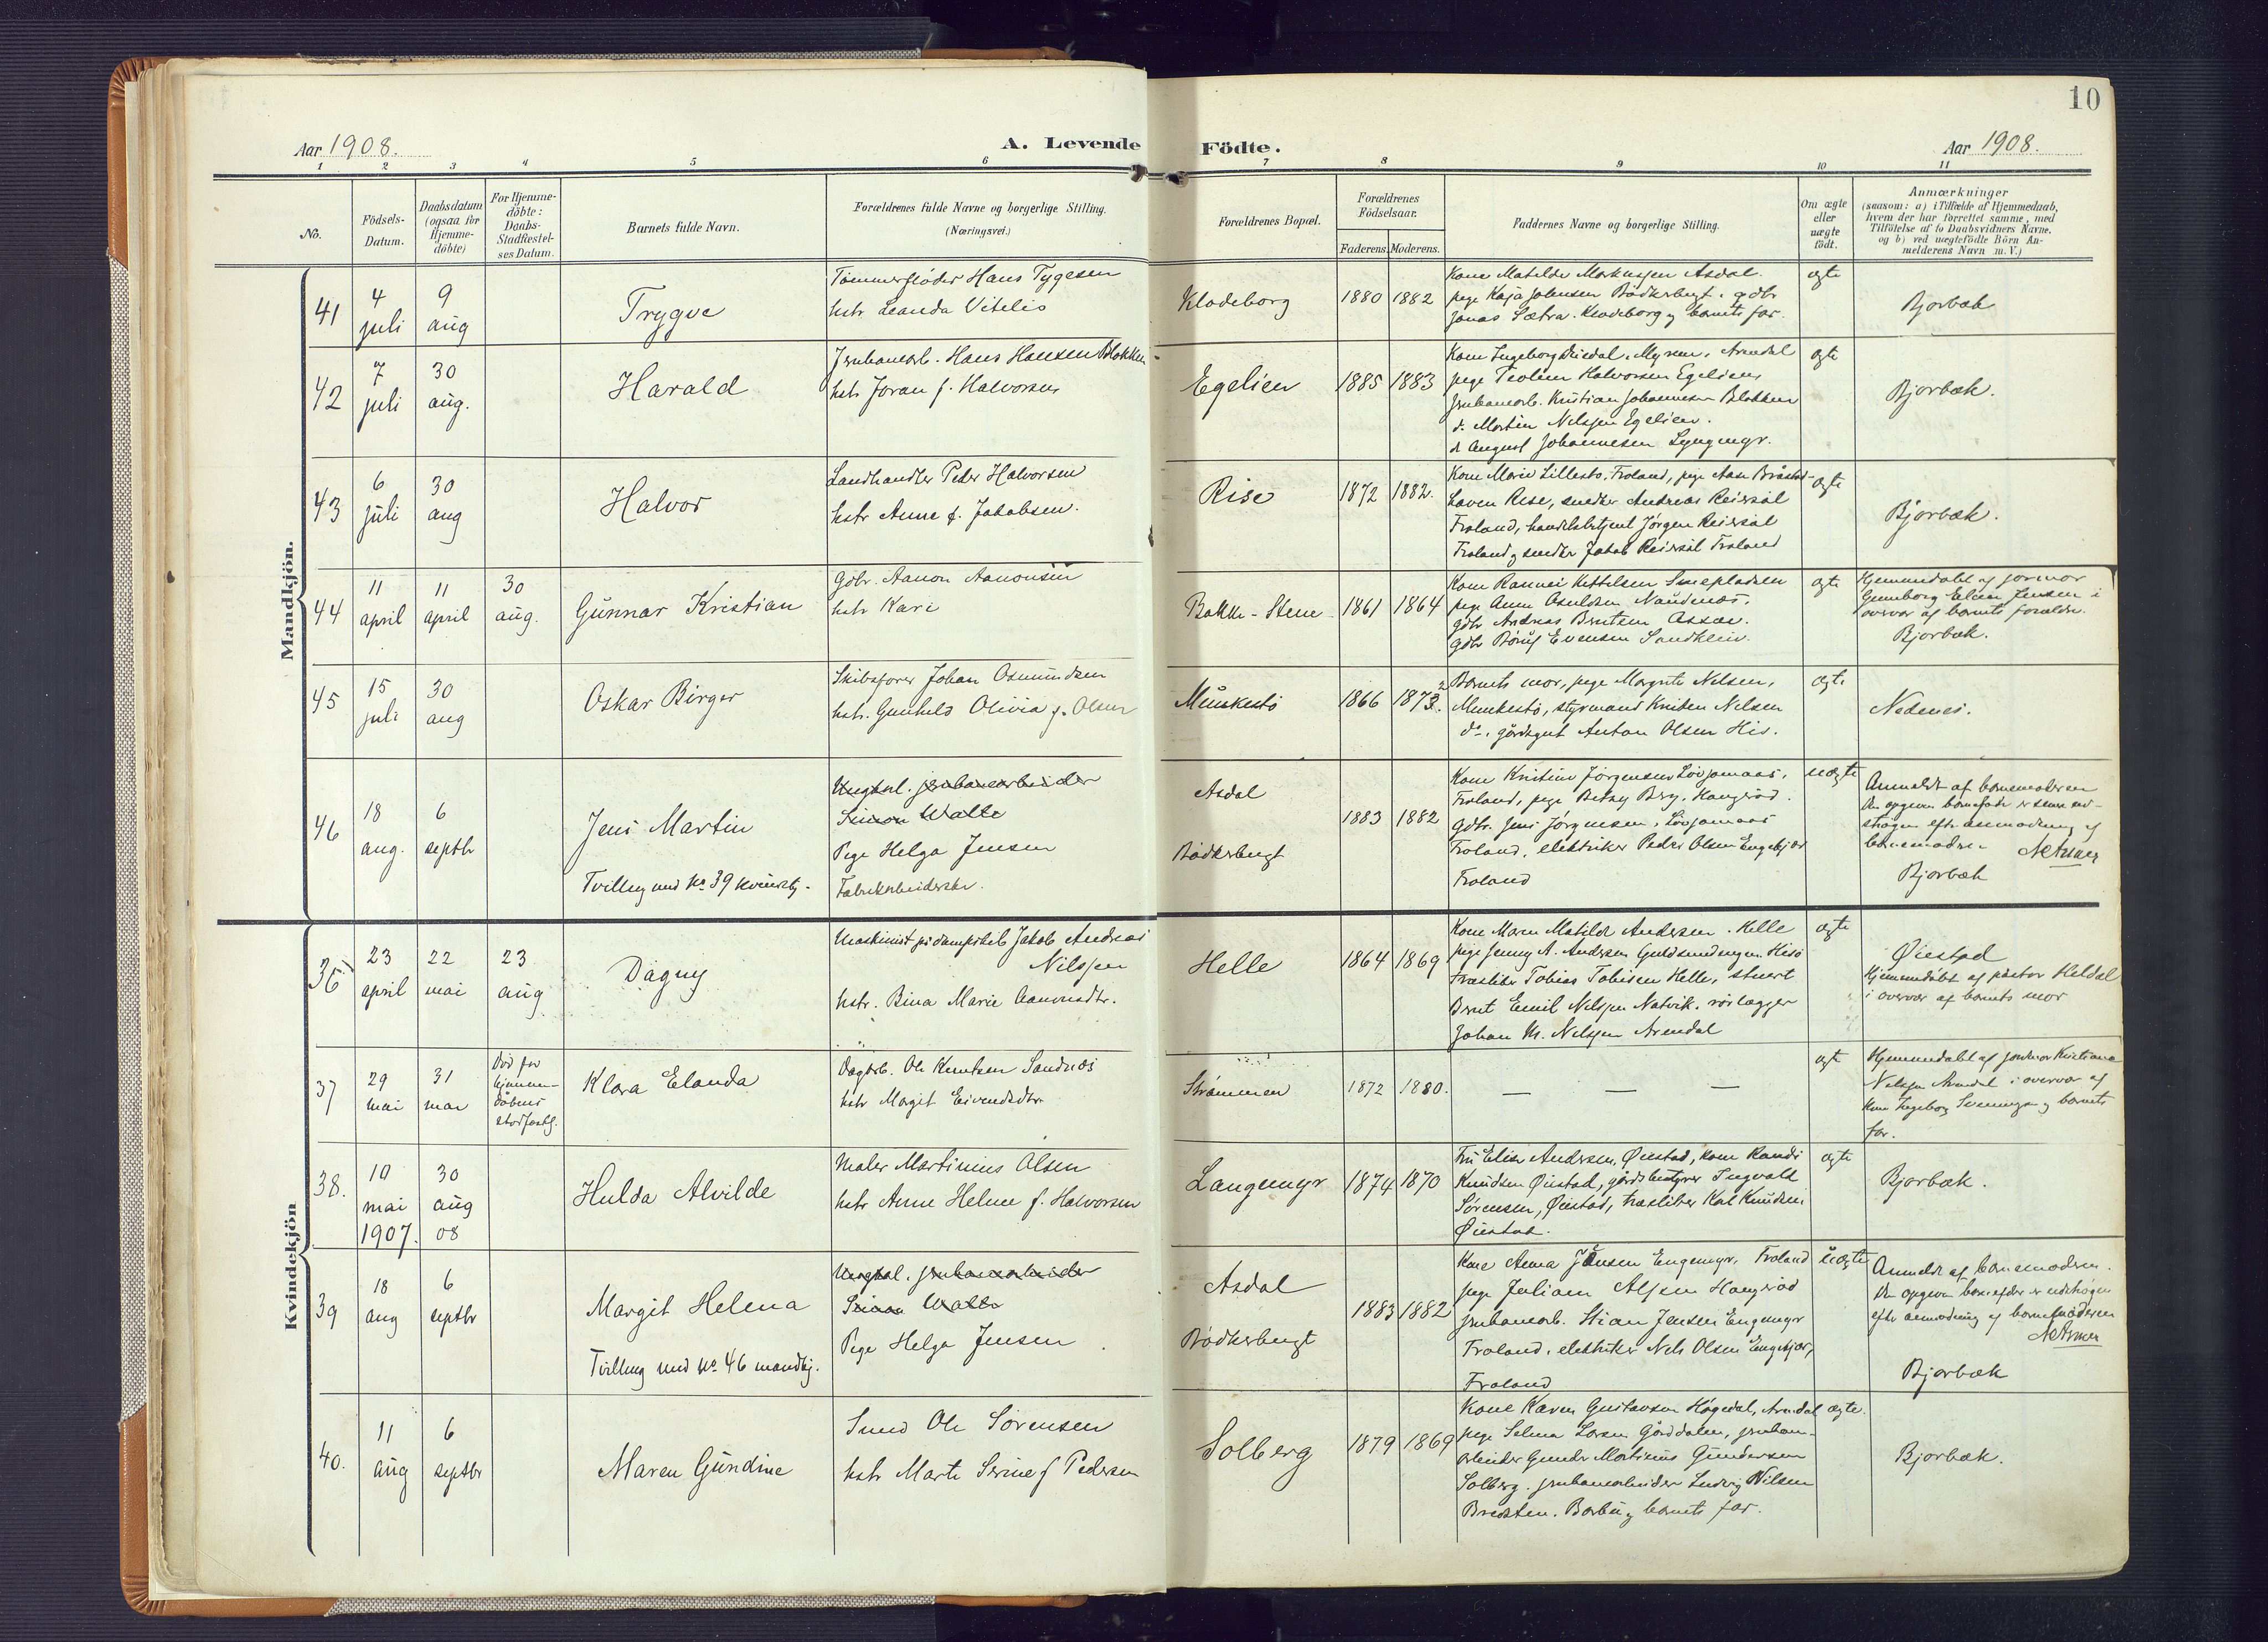 10
Aar 1908.
A. Levende Födte.
Aar 1908.
1 2 3 4 5 6 7 8 9 10 11
No.
Födsels-Datum.
Daabsdatum (ogsaa for Hjemme-döbte)
For Hjemme-döbte: Daabs-Stadfæstel-ses Datum.
Barnets fulde Navn.
Forældrenes fulde Navne og borgerlige Stilling.
(Næringsvei.)
Forældrenes Bopæl.
Forældrenes Födselsaar.
Faderens. Moderens.
Faddernes Navne og borgerlige Stilling.
Om ægte eller uægte födt.
Anmærkninger
(saasom: a) i Tilfælde af Hjemmedaab,
hvem der har forrettet samme, med
Tilföielse af to Daabsvidners Navne,
og b) ved uægtefödte Börn An-
melderens Navn m. V.)
Mandkjön.
41
4 juli
9 aug
Trygve
Tømmerfløder Hans Tygesen
hstr Leanda Vitelis
Klodeborg
1880 1882
Kone Matilde Markussen Asdal.
pige Kaja Johnsen Bödkerbugt, gdbr
Jonas Sætra. Klodeborg og barnets far.
ægte
Bjorbæk
42
7 juli
30 aug.
Harald
Jernbanearb. Hans Hansen Blakken
hstr Joran f. Halvorsen
Egelien
1885 1883
Myren, Arendal
pige Teoline Halvorsen Egelien,
jernbanearb. Kristian Johannesen Blakken
do Martin Nilssen Egelien.
do August Johannesen Lyngmyr.
ægte
Bjorbæk.
43
6 juli
30 aug
Halvor
Landhandler Peder Halvorsen
hstr Anne f. Jakobsen.
Rise
1872 1882.
Kone Marie Lillestø, Froland, pige Aase Bråstad-
haven Rise, snedker Andreas Reiersøl
Froland, handelsbetjent Jørgen Reiersøl
Froland og snedker Jakob Reiersøl Froland
ægte
Bjorbæk.
44
11 april
11 april
30 aug.
Gunnar Kristian
Gdbr. Aanon Aanonsen
hstr Kari
Bakke-Stene
1861 1864
Kone Rannei Kittilsen Smepladsen
pige Anne Osuldsen Naudenæs.
gdbr Andreas Berntsen Assæv.
gdbr Børuf Evensen Sandklein.
ægte
Hjemmedøbt af jormor
Gunborg Elen Jensen i
overvær af barnets forældre.
Bjorbæk.
45
15 juli
30 aug
Oskar Birger
Skibsfører Johan Osmundsen
hstr. Gunhild Olivia f. Olsen
Munkestø
1866 1873.
2
Barnets mor, pige Margrete Nilsen,
Munkestø, styrmand Kristen Nilsen
do, gårdsgut Anton Olsen His.
ægte
Nedenes.
46
18 aug.
6 septbr
Jens Martin
Tvilling med No 39 kvindekj.
Ungkarl. jernbanearbeider
Simon Walle
Pige Helga Jensen
Fabrikarbeiderske.
Asdal
Bødkerbugt
1883 1882
Kone Kristine Jørgensen Løvjomaas,
Froland, pige Betzy Berg, Haugerød.
Gdbr. Jens Jørgensen, Løvjomaas
Froland, elektriker Peder Olsen Engekjær
Froland
uægte
Anmeldt af barnemoderen
Den opgivne barnefader er senere ud-
strøgen efter anmodning af
barnemoderen
Bjorbæk
Kvindekjön
36
23 april
22 mai
23 aug
Dagny
Maskinist på dampskib Jakob Andreas
Nilssen
hstr. Bina Marie Aanonsdtr.
Helle
1864 1869
Kone Maren Matilde Andersen, Helle
pige Jenny A. Andersen Guldsmedengen Hisø
træsliber Tobias Tobisen Helle, stuert
Bernt Emil Nilssen Natvik, rørlægger
Johan M. Nilssen Arendal
ægte
Øiestad
Hjemmedøbt af pastor Heldal
i overvær af barnets mor
37
29 mai
31 mai
Død før
hjemme-
dåbens
stadfæst.
Klara Elanda
Dagarb. Ole Knutsen Sandnæs
hstr Margit Eivendsdtr.
Strømmen
1872 1880.
— — —
ægte
Hjemmedøbt af jordmor Kristiane
Nilssen Arendal i overvær af
Kone Ingeborg og barnets
far.
38.
10 mai 1907.
30 aug 08
Hulda Alvilde
Maler Martinius Olsen
hstr Anne Helene f. Halvorsen
Langemyr
1874 1870
Fru Elise Andersen, Øiestad, kone Randi
Knudsen Øiestad, gårdsbestyrer Ingvald
Sørensen, Øiestad, træsliber Karl Knudsen
Øiestad.
ægte
Bjorbæk.
39
18 aug
6 septbr
Margit Helena
Tvilling med No 46 mandkj.
Ungkarl. jernbanearbeider
Simon Walle
Pige Helga Jensen
Asdal
Bødkerbugt
1883 1882
Kone Anna Jensen Engemyr, Froland
pige Juliane Alfsen Haugerød
jernbanearb. Stian Jensen Engemyr
Froland, elektriker Nels Olsen Engekjær,
Froland
uægte
Anmeldt af barnemoderen.
Den opgivne barnefader er udstrøgen
efter anmodning af barnemoderen
Bjorbæk
40.
11 aug
6 septbr
Maren Gundine
Smed Ole Sørensen
hstr Marte Serine f. Pedersen
Solberg
1879 1869
Kone Karen Gustavsen Høgedal, Arendal
pige Selma Larsen Gårddalen, jernban-
arbeider Gunder Martinius Gundersen
Solberg, jernbanearbeider Ludvig Nilsen
Bredsten, Barbu og barnets far.
ægte.
Bjorbæk.